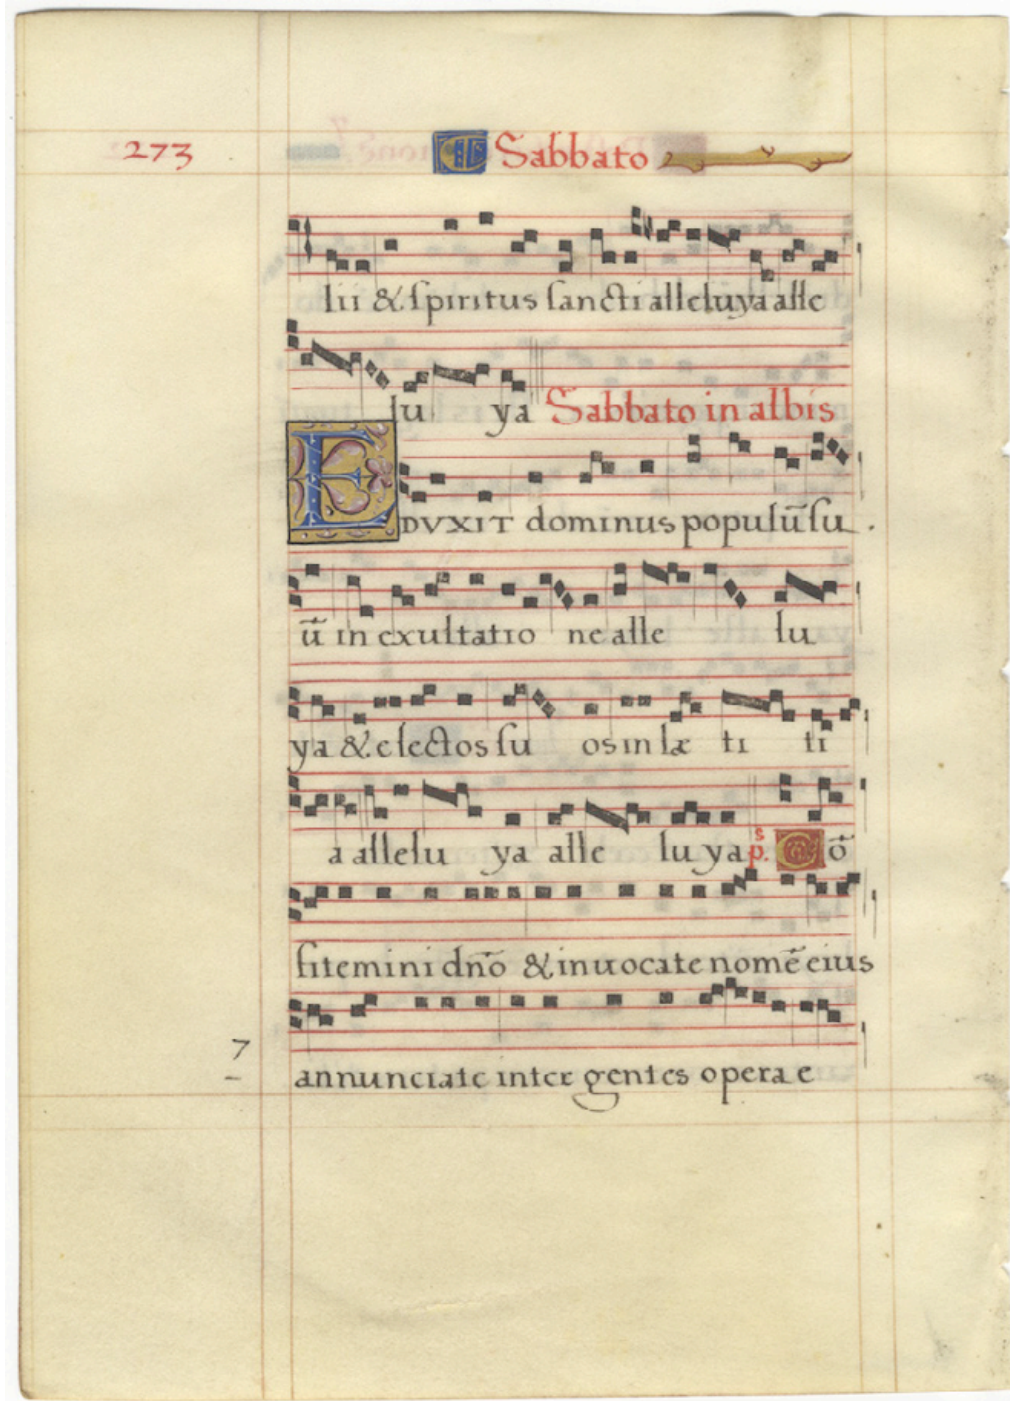 273 Sabbato
lii & ſpiritus ſancti alleluya alle
lu ya Sabbato in albis
EDVXIT dominus populū ſu .
ū in exultatio ne alle lu
ya & electos ſu os in læ ti ti
a allelu ya alle lu ya p.s Cō
fitemini dn̄o & inuocate nomē eius
7
annunciate inter gentes opera e